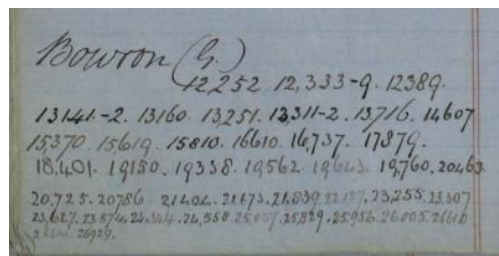 Bowron (G.)
12,252 12,333-9. 12389.
13141.-2. 13160. 13,251. 13,311-2. 13,716. 14607
15,370. 15619. 15810. 16610. 16,737. 17879.
18,401. 19150. 19338. 19562. 19643. 19,760. 20463
20,725. 20786. 21404. 21173. 21,839 23,255. 23307
23,627. 24,344. 24,558. 25037. 25,829. 25,956. 26005.
26929.